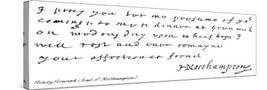 I pray you let me presume of yr
comings to me to dinner at
on wedensday upon hope I
will rest and ever remayne
your affectionat frend
Northampton
Henry Howard (Earl of Northampton)